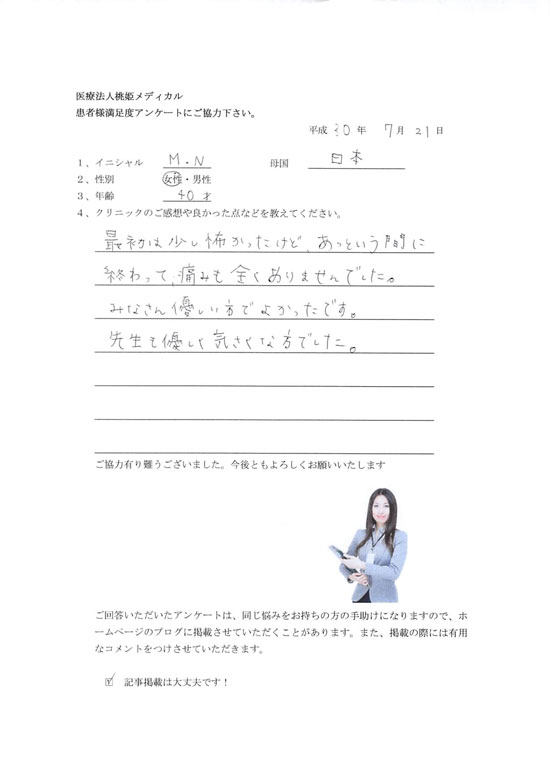 医療法人桃姫メディカル
患者様満足度アンケートにご協力下さい。
平成 30 年 7 月 21 日
1、イニシャル M.N 母国 日本
2、性別 女性・男性
3、年齢 40才
4、クリニックのご感想や良かった点などを教えてください。
最初は少し怖かったけど、あっという間に
終わって、痛みも全くありませんでした。
みなさん優しい方でよかったです。
先生も優しく気さくな方でした。
ご協力有り難うございました。今後ともよろしくお願いいたします
ご回答いただいたアンケートは、同じ悩みをお持ちの方の手助けになりますので、ホ
ームページのブログに掲載させていただくことがあります。また、掲載の際には有用
なコメントをつけさせていただきます。
記事掲載は大丈夫です！